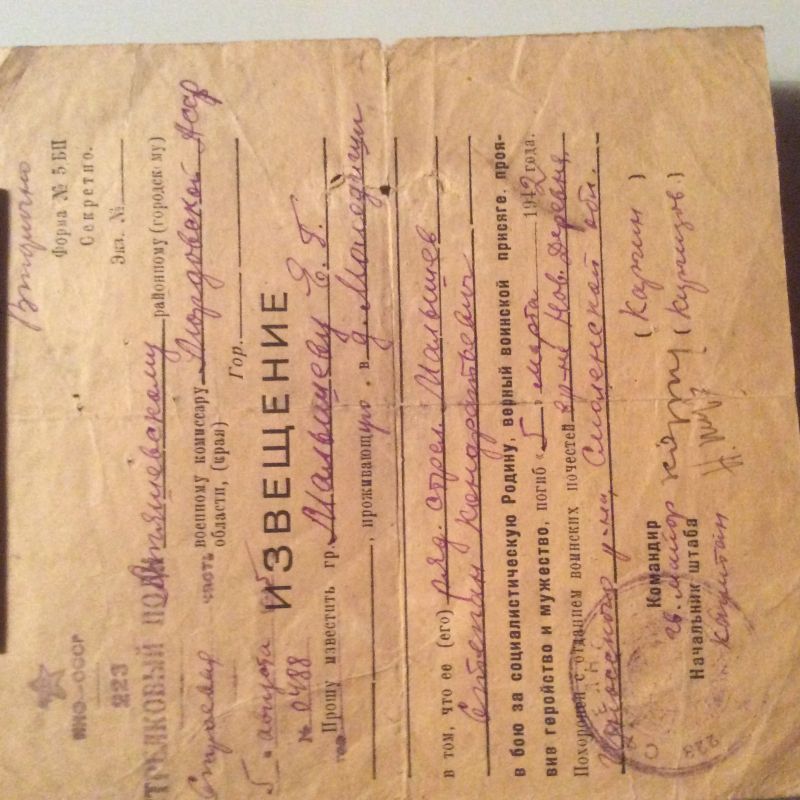 Вторично
Форма № 5 БП
Секретно.
Экз. №
НКО—СССР
223
СТРЕЛКОВЫЙ ПОЛК
Строевая часть
5. августа
№ 0488
районному (городскому)
военному комиссару Мордовской АССР
области, (края)
Гор.
ИЗВЕЩЕНИЕ
Прошу известить гр. Малышеву Е. Г.
, проживающую, в д. Маледищи
в том, что ее (его) ряд. стрел. Малышев
Степан Кондратьевич
в бою за социалистическую Родину, верный воинской присяге, прояв-
вив геройство и мужество, погиб „5„ марта 1942 года.
Похоронен с отданием воинских почестей Нов. Деревня,
р-на, Смоленской обл.
Командир
гв. майор (Карпин)
Начальник штаба
капитан